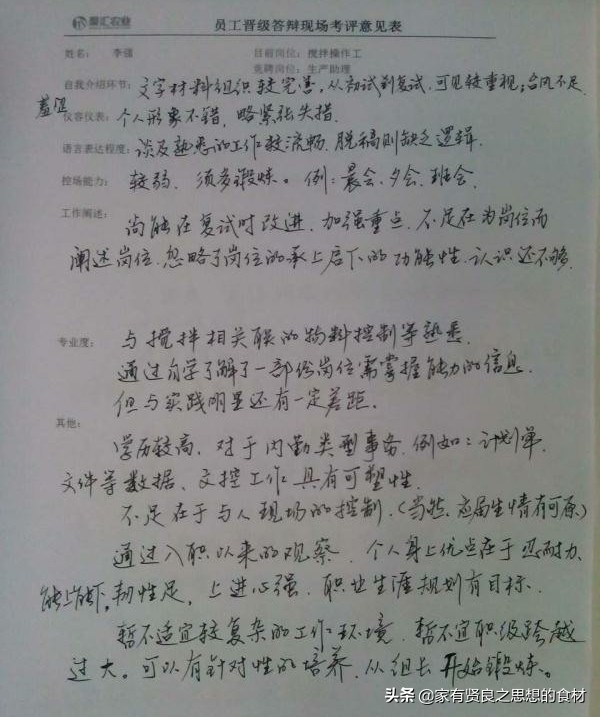 聚汇农业
员工晋级答辩现场考评意见表
姓名： 李强 目前岗位：搅拌操作工
竞聘岗位：生产助理
自我介绍环节：文字材料组织较完善，从初试到复试，可见较重视；台风不足
羞涩
仪容仪表：个人形象不错，略紧张失措.
语言表达程度：谈及熟悉的工作较流畅，脱稿则缺乏逻辑.
控场能力： 较弱，须多锻炼。例：晨会、夕会、班会.
工作阐述： 尚能在复试时改进，加强重点，不足在为岗位而
阐述岗位，忽略了岗位的承上启下的功能性，认识还不够.
专业度： 与搅拌相关联的物料控制等熟悉.
通过自学了解了一部份岗位需掌握能力的信息.
但与实践明显还有一定差距.
其他：
学历较高，对于内勤类型事务，例如：计划单、
文件等数据、文控工作具有可塑性.
不足在于与人现场的控制.（当然，应届生情有可原）
通过入职以来的观察，个人身上优点在于忍耐力、
能上能下，韧性足，上进心强，职业生涯规划有目标.
暂不适宜较复杂的工作环境，暂不宜职级跨越
过大。可以有针对性的培养，从组长开始锻炼。
头条 @家有贤良之思想的食材